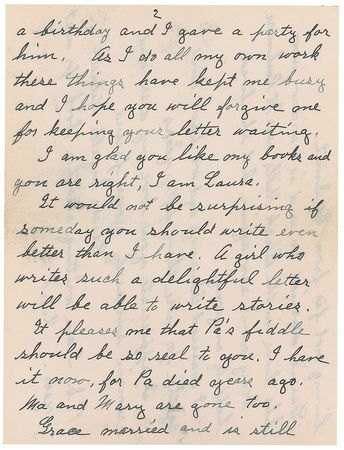 2
a birthday and I gave a party for
him. As I do all my own work
these things have kept me busy
and I hope you will forgive me
for keeping your letter waiting.
I am glad you like my books and
you are right, I am Laura.
It would not be surprising if
someday you should write even
better than I have. A girl who
writes such a delightful letter
will be able to write stories.
It pleases me that Pa's fiddle
should be so real to you. I have
it now, for Pa died years ago.
Ma and Mary are gone too.
Grace married and is still